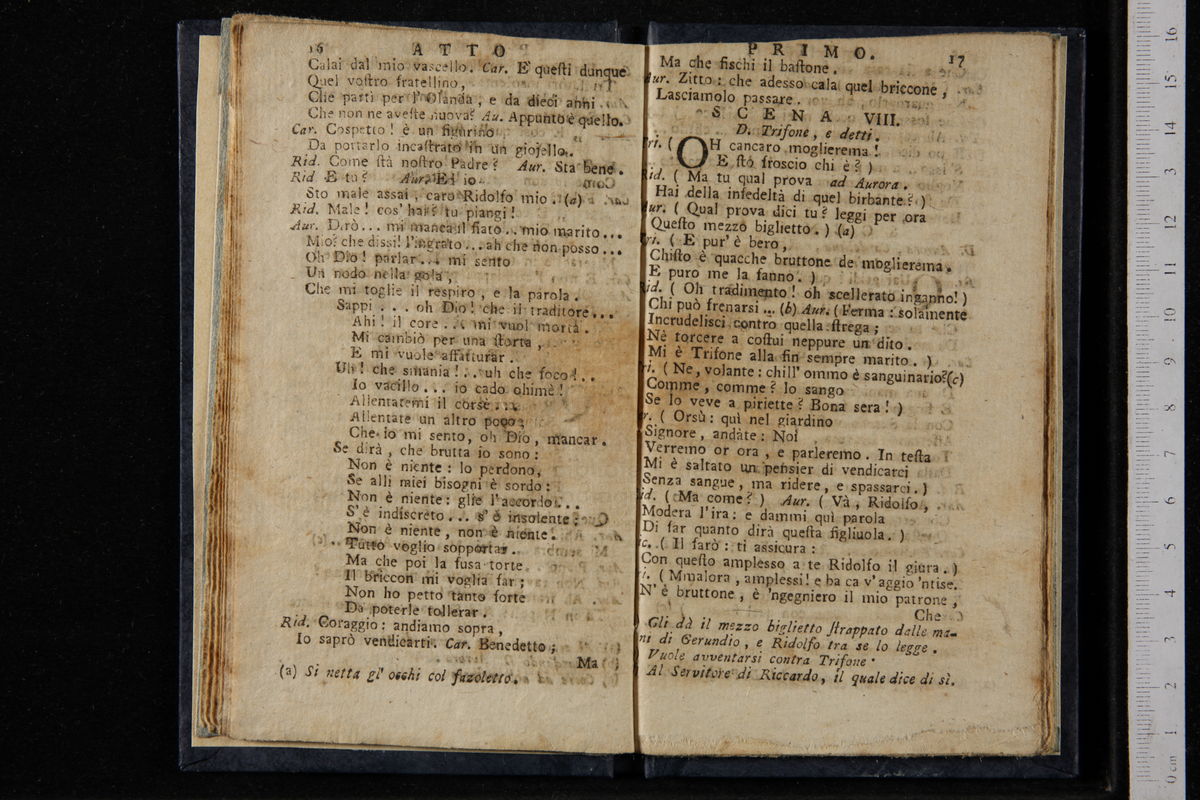 16 ATTO
Calai dal mio vascello. Car. E' questi dunque
Quel vostro fratellino,
Che partì per l'Olanda, e da dieci anni
Che non ne aveste nuova? Au. Appunto è quello.
Car. Cospetto! è un figurino
Da portarlo incastrato in un giojello.
Rid. Come stà nostro Padre? Aur. Sta bene.
Rid. E tu? Aur. Ed io
Sto male assai, caro Ridolfo mio. (a)
Rid. Male! cos' hai? tu piangi!
Aur. Dirò... mi manca il fiato.. mio marito...
Mio? che dissi! l'ingrato... ah che non posso...
Oh Dio! parlar... mi sento
Un nodo nella gola,
Che mi toglie il respiro, e la parola.
Sappi... oh Dio! che il traditore...
Ahi! il core... mi vuol morta.
Mi cambiò per una storta,
E mi vuole affatturar.
Uh! che smania!.. uh che foco!..
Io vacillo... io cado ohimè!
Allentatemi il corsè...
Allentate un altro poco;
Che io mi sento, oh Dio, mancar.
Se dirà, che brutta io sono:
Non è niente: lo perdono.
Se alli miei bisogni è sordo:
Non è niente: glie l'accordo...
S'è indiscreto... s'è insolente:
Non è niente, non è niente.
Tutto voglio sopportar.
Ma che poi la fusa torte
Il briccon mi voglia far;
Non ho petto tanto forte
Da poterle tollerar.
Rid. Coraggio: andiamo sopra,
Io saprò vendicarti. Car. Benedetto;
Ma
(a) Si netta gl' occhi col fazoletto.
PRIMO. 17
Ma che fischi il bastone.
Aur. Zitto: che adesso cala quel briccone,
Lasciamolo passare.
SCENA VIII.
D. Trifone, e detti.
Tri. (OH cancaro moglierema!
E stó froscio chi è?)
Rid. (Ma tu qual prova ad Aurora.
Hai della infedeltà di quel birbante?)
Aur. (Qual prova dici tu? leggi per ora
Questo mezzo biglietto.) (a)
Tri. (E pur' è bero,
Chisto è quacche bruttone de moglierema.
E puro me la fanno.)
Rid. (Oh tradimento! oh scellerato inganno!)
Chi può frenarsi... (b) Aur. (Ferma: solamente
Incrudelisci contro quella strega;
Nè torcere a costui neppure un dito.
Mi è Trifone alla fin sempre marito.)
Tri. (Ne, volante: chill' ommo è sanguinario?(c)
Comme, comme? lo sango
Se lo veve a piriette? Bona sera!)
r. (Orsù: quì nel giardino
Signore, andàte: Noi
Verremo or ora, e parleremo. In testa
Mi è saltato un pensier di vendicarci
Senza sangue, ma ridere, e spassarci.)
Rid. (Ma come?) Aur. (Và, Ridolfo,
Modera l'ira: e dammi quì parola
Di far quanto dirà questa figliuola.)
ic. (Il farò: ti assicura:
Con questo amplesso a te Ridolfo il giura.)
Tri. (Mmalora, amplessi! e ba ca v'aggio 'ntise.
N' è bruttone, è 'ngegniero il mio patrone,
Che
Gli dà il mezzo biglietto strappato dalle ma-
ni di Gerundio, e Ridolfo tra se lo legge.
Vuole avventarsi contra Trifone.
Al Servitore di Riccardo, il quale dice di sì.
0 cm 1 2 3 4 5 6 7 8 9 10 11 12 13 14 15 16